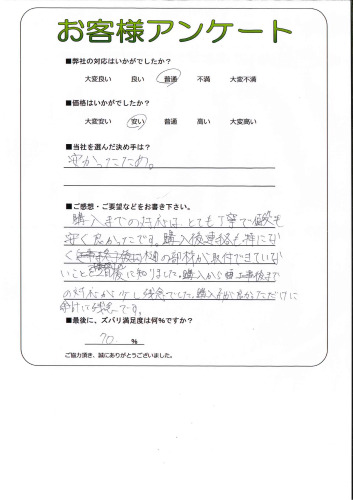 お客様アンケート
■弊社の対応はいかがでしたか？
大変良い 良い 普通 不満 大変不満
■価格はいかがでしたか？
大変安い 安い 普通 高い 大変高い
■当社を選んだ決め手は？
安かったため。
■ご感想・ご要望などをお書き下さい。
購入までの対応は、とても丁寧で値段も
安く良かったです。購入後連絡も特にな
く の部材が取付できていな
いことを 後に知りました。購入から 工事後まで
の対応が少し残念でした。購入 が良かっただけに
余計に残念です。
■最後に、ズバリ満足度は何%ですか？
70 %
ご協力頂き、誠にありがとうございました。